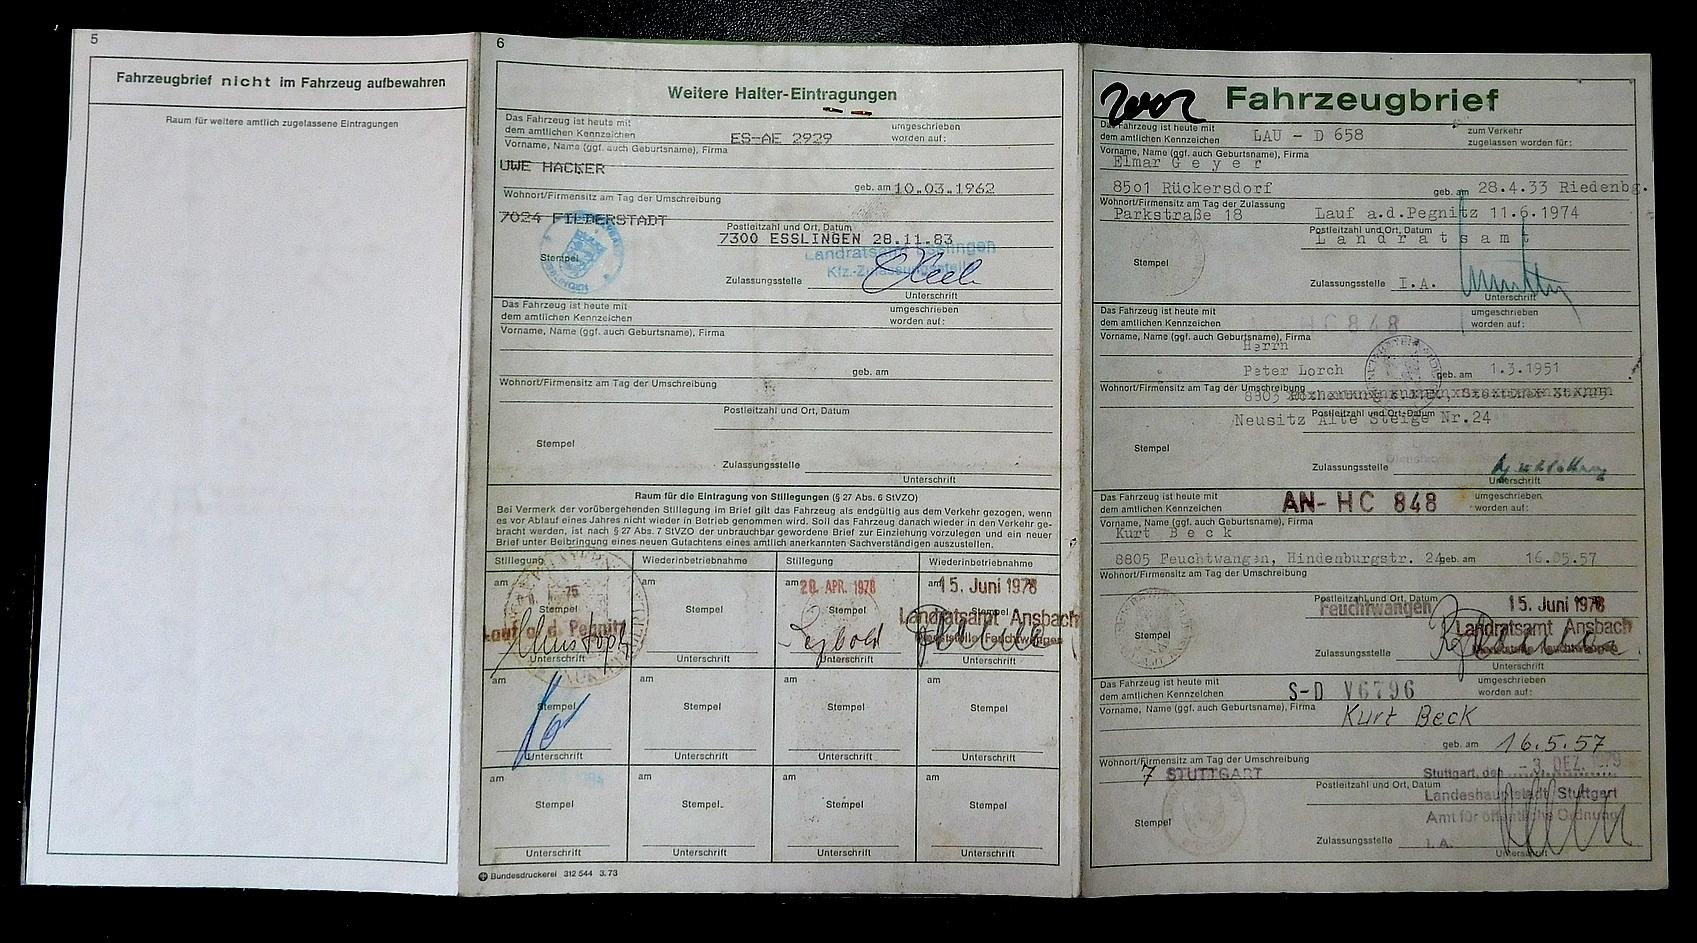 5
Fahrzeugbrief nicht im Fahrzeug aufbewahren
Raum für weitere amtlich zugelassene Eintragungen
6
Weitere Halter-Eintragungen
Das Fahrzeug ist heute mit
dem amtlichen Kennzeichen ES-AE 2929 umgeschrieben
worden auf:
Vorname, Name (ggf. auch Geburtsname), Firma
UWE HACKER
geb. am 10.03.1962
Wohnort/Firmensitz am Tag der Umschreibung
7024 FILDERSTADT
Postleitzahl und Ort, Datum
7300 ESSLINGEN 28.11.83
Landratsamt Esslingen
Kfz-Zulassungsstelle
Stempel
Zulassungsstelle
Unterschrift
Das Fahrzeug ist heute mit
dem amtlichen Kennzeichen
umgeschrieben
worden auf:
Vorname, Name (ggf. auch Geburtsname), Firma
geb. am
Wohnort/Firmensitz am Tag der Umschreibung
Postleitzahl und Ort, Datum
Stempel
Zulassungsstelle
Unterschrift
Raum für die Eintragung von Stillegungen (§ 27 Abs. 6 StVZO)
Bei Vermerk der vorübergehenden Stillegung im Brief gilt das Fahrzeug als endgültig aus dem Verkehr gezogen, wenn
es vor Ablauf eines Jahres nicht wieder in Betrieb genommen wird. Soll das Fahrzeug danach wieder in den Verkehr ge-
bracht werden, ist nach § 27 Abs. 7 StVZO der unbrauchbar gewordene Brief zur Einziehung vorzulegen und ein neuer
Brief unter Beibringung eines neuen Gutachtens eines amtlich anerkannten Sachverständigen auszustellen.
Stillegung Wiederinbetriebnahme Stillegung Wiederinbetriebnahme
am am am 20. APR. 1978 am 15. Juni 1978
Stempel Stempel Stempel Stempel
Lauf a. d. Pegnitz Landratsamt Ansbach
Unterschrift Unterschrift Unterschrift Unterschrift
am am am am
Stempel Stempel Stempel Stempel
Unterschrift Unterschrift Unterschrift Unterschrift
am am am am
Stempel Stempel Stempel Stempel
Unterschrift Unterschrift Unterschrift Unterschrift
Bundesdruckerei 312 544 3.73
Fahrzeugbrief
Das Fahrzeug ist heute mit
dem amtlichen Kennzeichen LAU - D 658 zum Verkehr
zugelassen worden für:
Vorname, Name (ggf. auch Geburtsname), Firma
Elmar Geyer
8501 Rückersdorf geb. am 28.4.33 Riedenbg.
Wohnort/Firmensitz am Tag der Zulassung
Parkstraße 18 Lauf a.d.Pegnitz 11.6.1974
Postleitzahl und Ort, Datum
Landratsamt
Stempel
Zulassungsstelle I.A.
Unterschrift
Das Fahrzeug ist heute mit
dem amtlichen Kennzeichen HC 848 umgeschrieben
worden auf:
Vorname, Name (ggf. auch Geburtsname), Firma
Herrn
Peter Lorch geb. am 1.3.1951
Wohnort/Firmensitz am Tag der Umschreibung
8803
Postleitzahl und Ort, Datum
Neusitz Alte Steige Nr.24
Stempel
Zulassungsstelle
Unterschrift
Das Fahrzeug ist heute mit
dem amtlichen Kennzeichen AN-HC 848 umgeschrieben
worden auf:
Vorname, Name (ggf. auch Geburtsname), Firma
Kurt Beck
8805 Feuchtwangen, Hindenburgstr. 24 geb. am 16.05.57
Wohnort/Firmensitz am Tag der Umschreibung
Postleitzahl und Ort, Datum
Feuchtwangen 15. Juni 1978
Landratsamt Ansbach
Stempel
Zulassungsstelle
Unterschrift
Das Fahrzeug ist heute mit
dem amtlichen Kennzeichen S-D V6796 umgeschrieben
worden auf:
Vorname, Name (ggf. auch Geburtsname), Firma Kurt Beck
geb. am 16.5.57
Wohnort/Firmensitz am Tag der Umschreibung
7 STUTTGART
Stuttgart, den -3. DEZ. 1979
Postleitzahl und Ort, Datum
Landeshauptstadt Stuttgart
Amt für öffentliche Ordnung
Stempel
Zulassungsstelle I.A.
Unterschrift